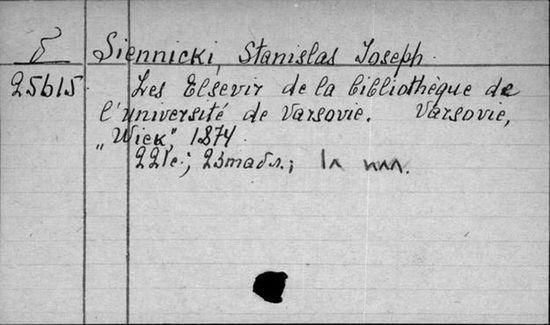 б Siennicki, Stanislas Joseph
25615 Les Elsevir de la bibliothèque de
l'université de Varsovie. Varsovie,
„Wiek", 1874
221с.; 23табл.; 1л илл.